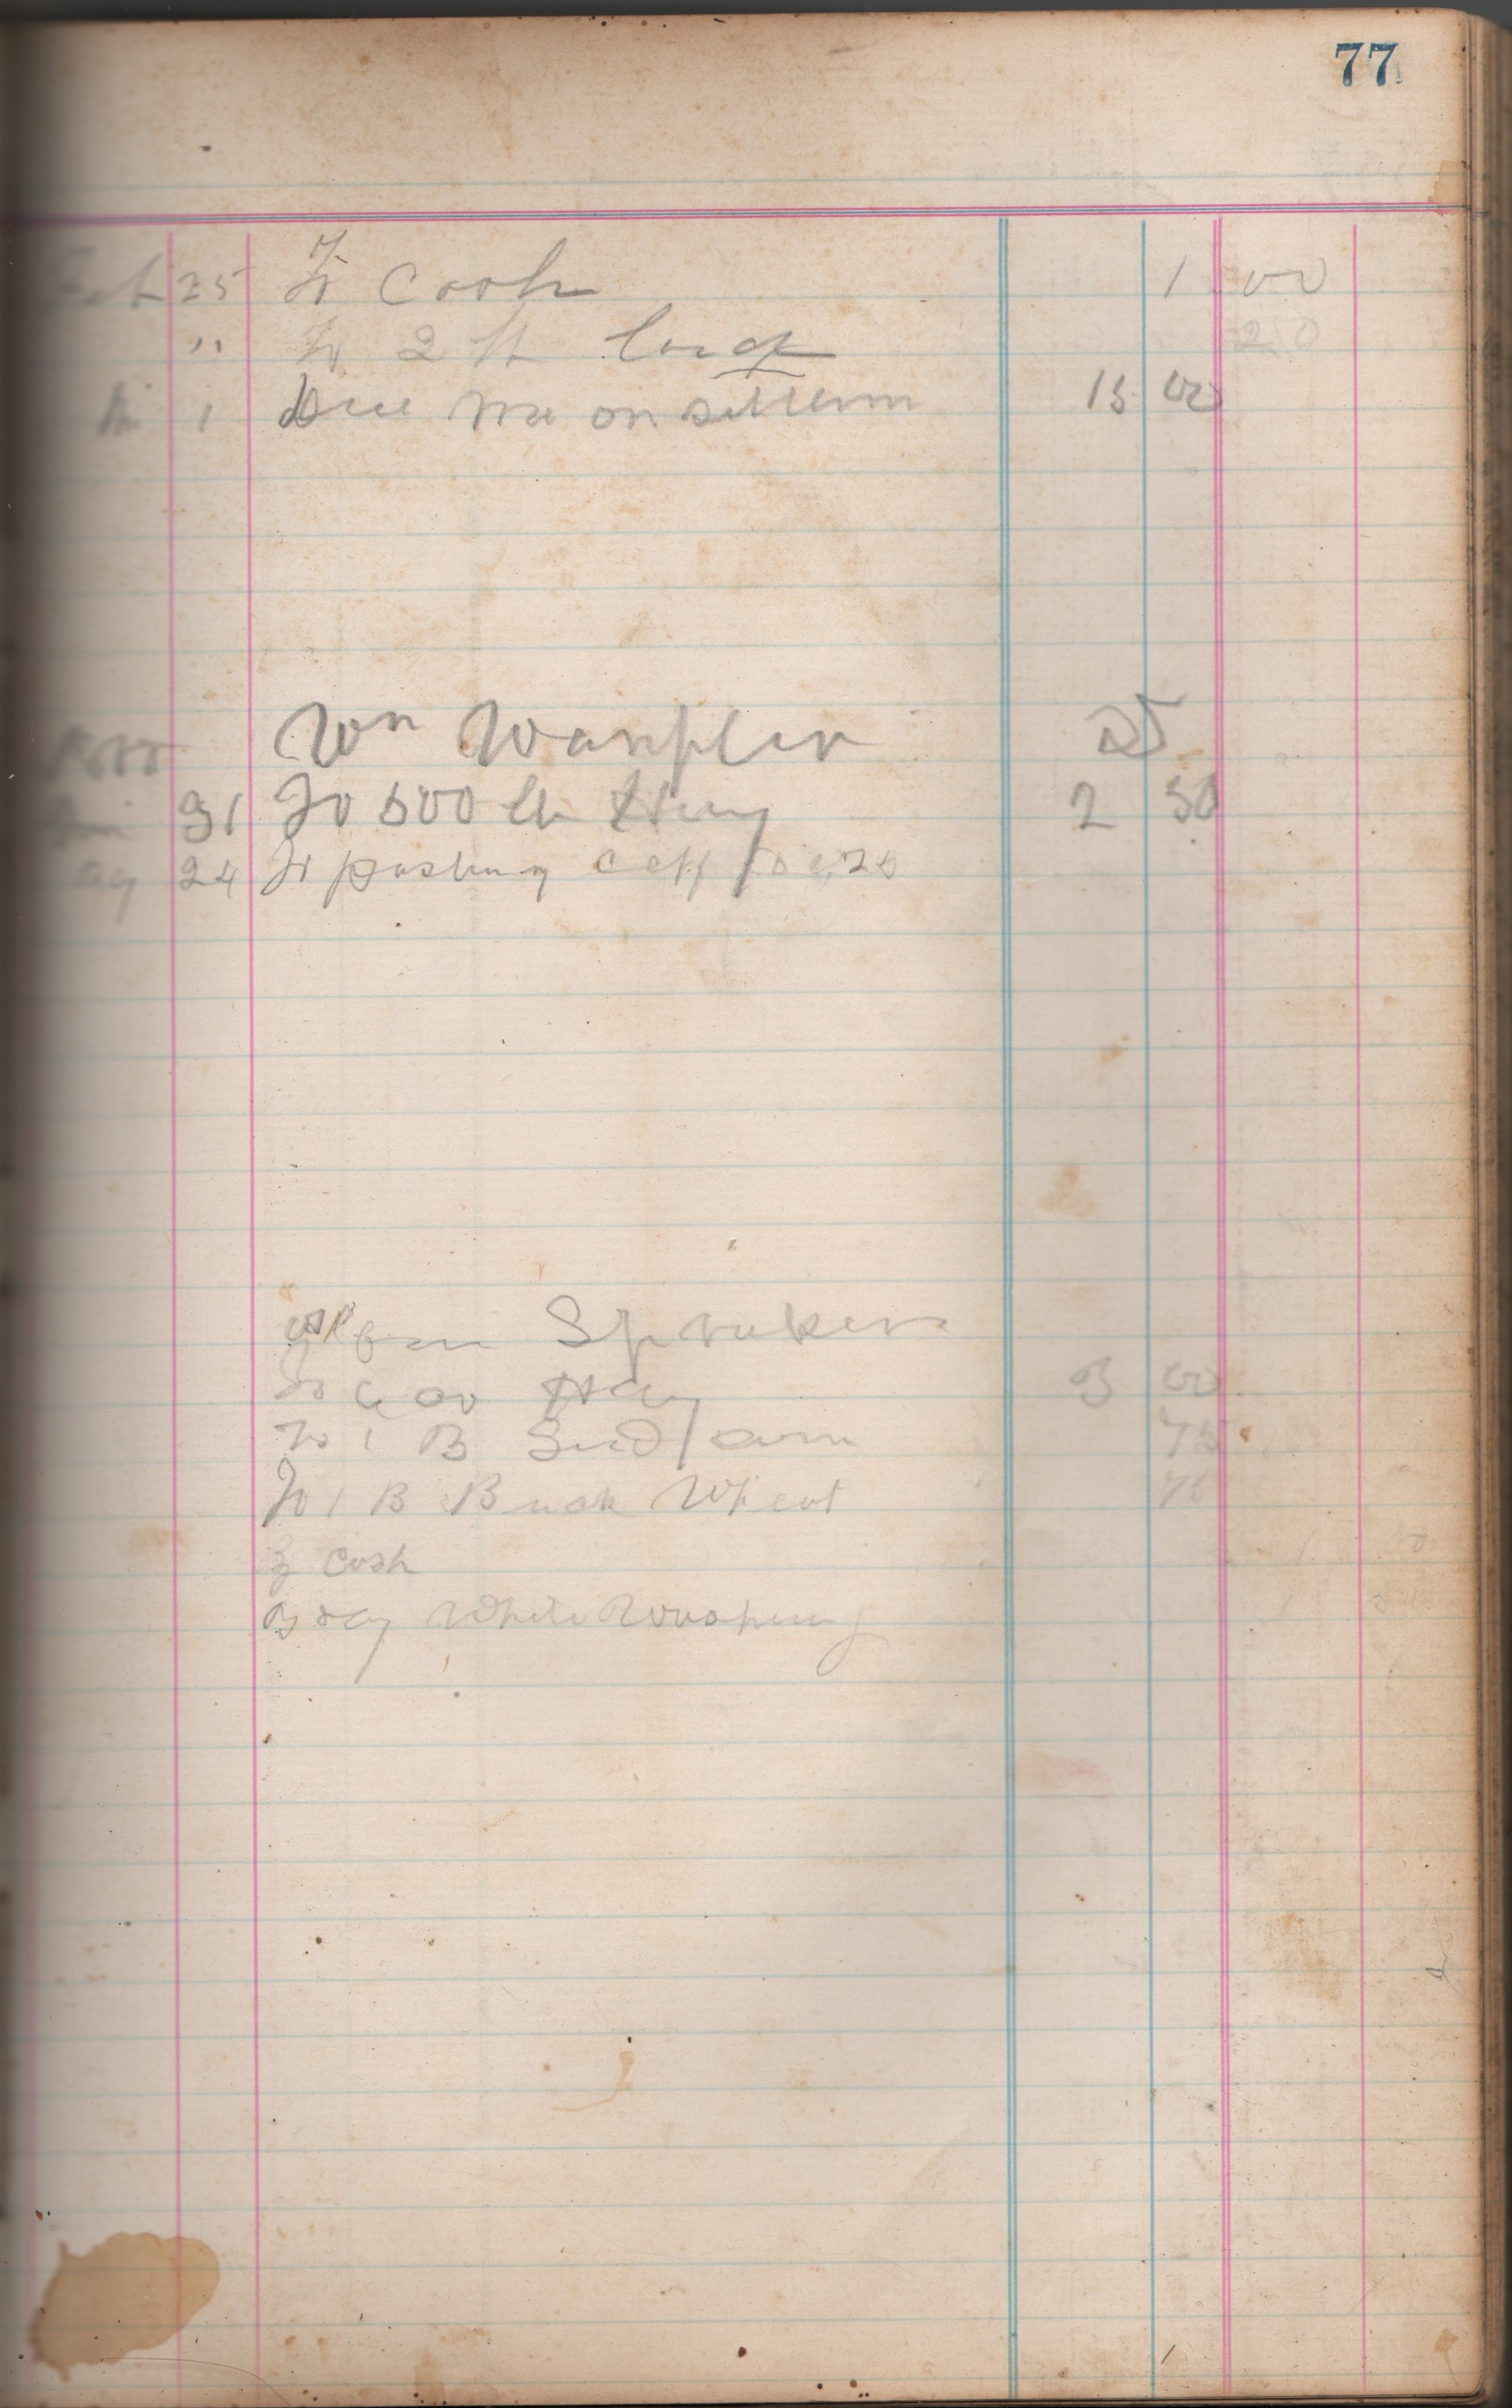 77
Feb 25 To Cash 1 00
" To 2 lb lard 20
1 Due me on settlem 15 00
Wm Wampler Dr
31 To 500 lb Hay 2 50
Ag 24 To pasturing Calf
Spraker
To 600 Hay 3 00
To 1 B Seed corn 75
To 1 B Buck Wheat 75
By Cash 1 00
By day White Washing 1